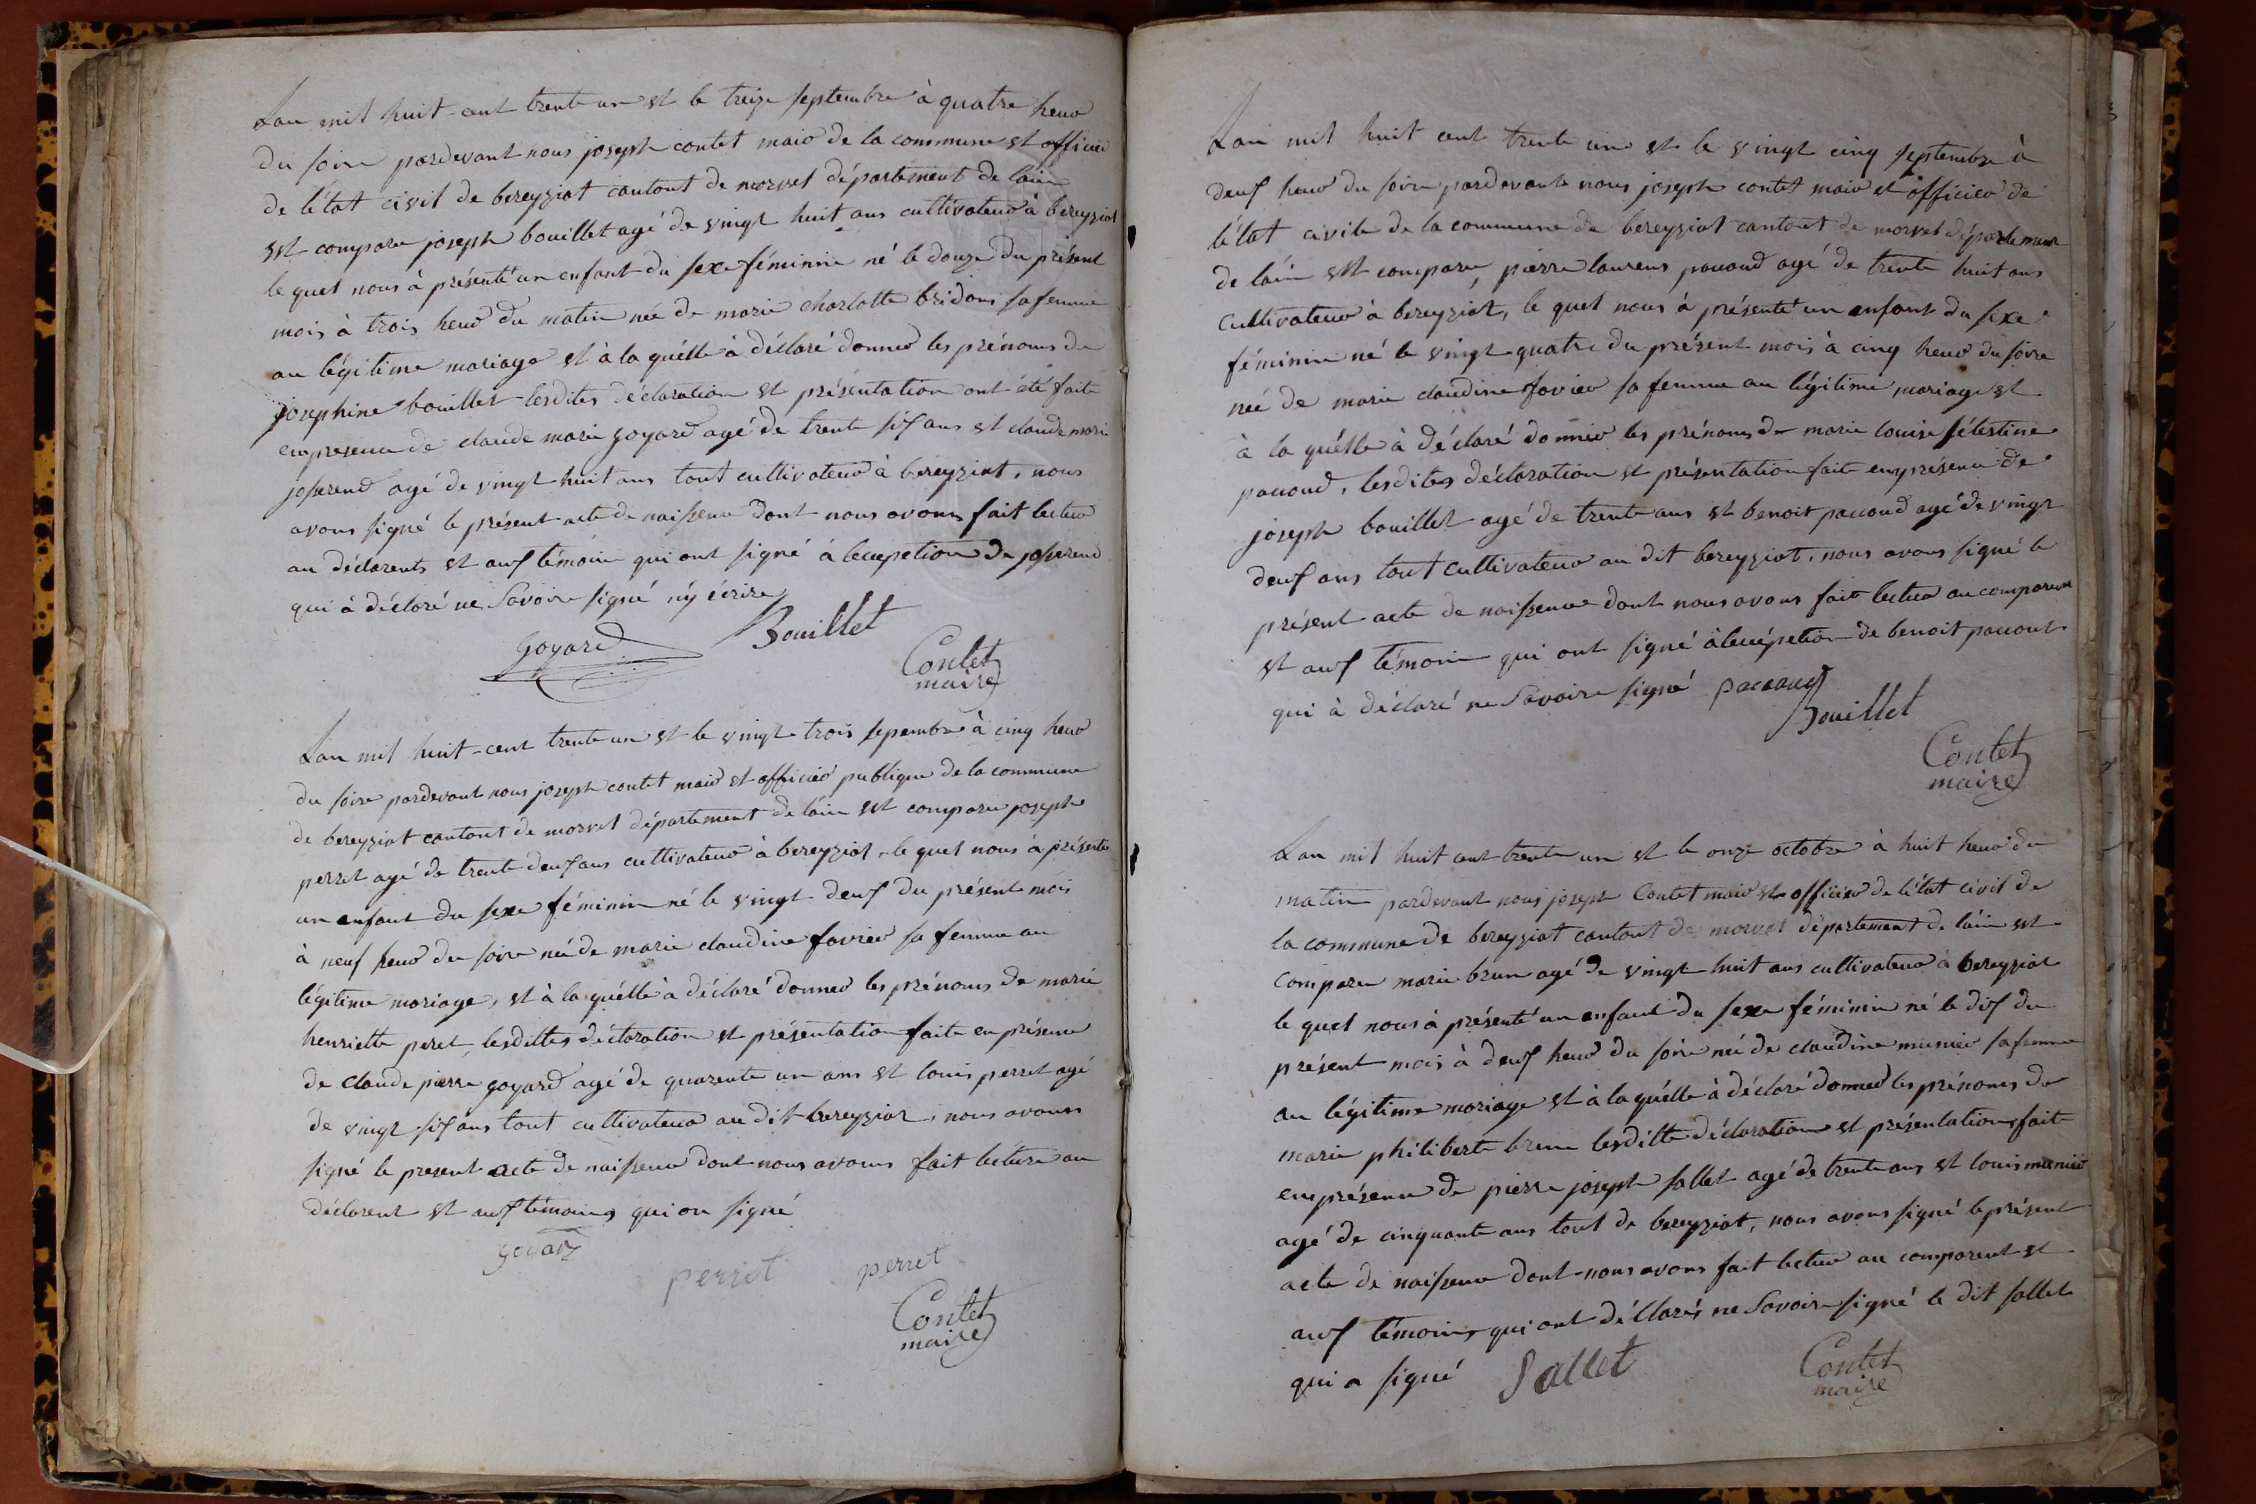 Lan mil huit-cent trente un et le treize septembre à quatre heur
du soire pardevant nous joseph contet mair de la commune et officier
de létat civil de bereyziat cantont de morvel département de lain
est comparu joseph bouillet agé de vingt huit ans cultivateur à bereyziat
le quel nous à présenté un enfant du sexe féminin né le douze du présent
mois à trois heur du matin née de marie charlotte bridons sa femme
au légitime mariage et à la quélle à déclaré donner les prénoms de
josephine bouillet lesdites déclaration et présentation ont été faite
empresence de claude marie goyard agé de trente six ans et claude marie
josserand agé de vingt huit ans tout cultivateur à bereyziat, nous
avons signé le présent acte de naissence dont nous avons fait lectur
au déclarents et aux témoin qui ont signé à lecception de josserand
qui à déclaré ne savoire signé ny écrire
goyard Bouillet
Contet
maire
Lan mil huit-cent trente un et le vingt trois sepembre à cinq heur
du soire pardevant nous joseph contet mair et officier publique de la commune
de bereyziat cantont de morvel département de lain est comparu joseph
perret agé de trente deux ans cultivateur à bereyziat, le quel nous à présenté
un enfant du sexe féminin né le vingt deux du présent mois
à neuf heur du soire née de marie claudine favier sa femme au
légitime mariage, et à la quélle à déclaré donner les prénoms de marie
henriette peret, lesdittes déclaration et présentation faite en présence
de claude pierre goyard agé de quarente un ans et louis perret agé
de vingt six ans tout cultivateur au dit bereyziat, nous avons
signé le present acte de naissence dont nous avons fait lecture au
déclarent et aux témoins qui on signé
goyard
perret perret
Contet
maire
Lan mil huit cent trente un et le vingt cinq septembre à
deux heur du soire pardevant nous joseph contet mair et officier de
létat civile de la commune de bereyziat cantont de morvel département
de lain est comparu, pierre laurens pacoud agé de trente huit ans
cultivateur à bereyziat, le quel nous à présenté un enfant du sexe
féminin né le vingt quatre du présent mois à cinq heur du soire
née de marie claudine favier sa femme au légitime mariage et
à la quélle à déclaré donner les prénoms de marie louise sélestine
pacoud, lesdites déclaration et présentation faite emprésence de
joseph bouillet agé de trente ans et benoit paccoud agé de vingt
deux ans tout cultivateur au dit bereyziat, nous avons signé le
présent acte de naissence dont nous avons fait lectur au comparent
et aux témoin qui ont signé à lecception de benoit paccout
qui à déclaré ne savoire signé paccaud
Bouillet
Contet
maire
Lan mil huit cent trente un et le onze octobre à huit heur du
matin pardevant nous joseph Contet mair et officier de létat civil de
la commune de bereyziat cantont de morvel département de lain est
comparu marie brun agé de vingt huit ans cultivateur à bereyziat
le quel nous à présenté un enfant du sexe féminin né le dix du
présent mois à deux heur du soire née de claudine munier sa femme
au légitime mariage et à la quélle à déclaré donner les prénoms de
marie philiberte brun lesditte déclaration et présentation faite
emprésence de pierre joseph sallet agé de trente ans et louis munier
agé de cinquante ans tout de bereyziat, nous avons signé le présent
acte de naissence dont nous avons fait lectur au comparent et
aux témoins qui ont déclarés ne savoire signé le dit sallet
qui a signé Sallet
Contet
maire